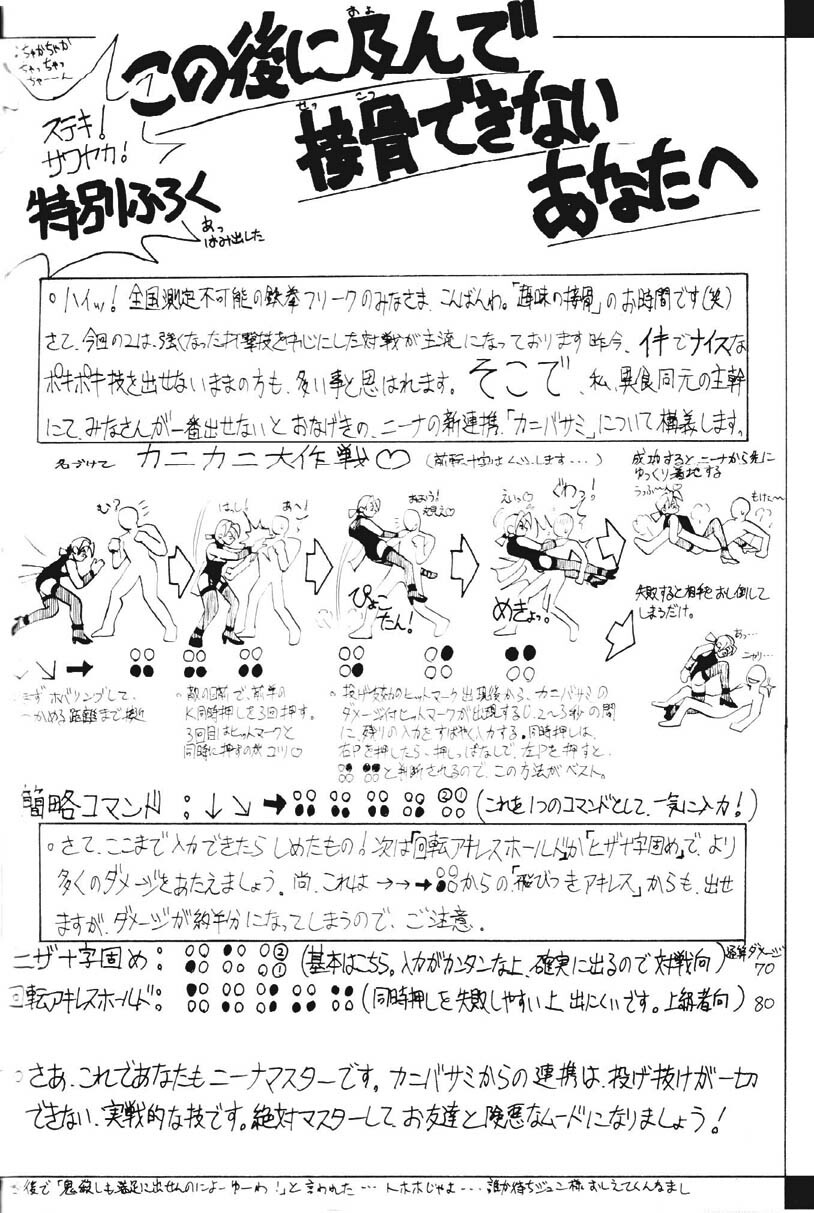 ちゃかちゃか
ちゃっちゃっ
ちゃーーん
この後に及んで
およ
接骨できない
せっ こつ
あなたへ
ステキ！
サワヤカ！
特別ふろく
あっ
はみ出した
○ハイッ！全国測定不可能の鉄拳フリークのみなさま、こんばんわ。「趣味の接骨」のお時間です(笑)
さて、今回の2は、強くなった打撃技を中心にした対戦が主流になっております昨今、イキでナイスな
ポキポキ技を出せないままの方も、多い事と思はれます。そこで、私、異食同元の主幹
にて、みなさんが一番出せないとおなげきの、ニーナの新連携「カニバサミ」について構義します。
名づけて カニカニ大作戦♡
成功するとニーナから先に
ゆっくり着地する
うっふ〜ん
む？
はし！
あ〜！
えいっ♡
ぐわっ！
ぴょこ
たん！
めきょっ。
失敗すると相手をおし倒して
しまうだけ。
あっ…
ニヤリ…
↓ ↘ ➡ ○○●● ○○●● ○○●● ○○○● ○○●○ ●●○○
まずホバリングして、
つかめる距離まで接近
○敵の目前で、前半の
K同時押しを3回押す。
3回目はヒットマークと
同時に押すのがコツ♡
○投げ成功のヒットマーク出現後から、カニバサミの
ダメージ付ヒットマークが出現する0.2〜3秒の間
に、残りの入力をすばやく入力する。同時押しは、
右Pを押したら、押しっぱなしで、左Pを押すと、
と判断されるので、この方法がベスト。
簡略コマンド：↓ ↘ ➡ ②① (これを1つのコマンドとして、一気に入力！)
○さて、ここまで入力できたらしめたもの！次は「回転アキレスホールド」か「ヒザ十字固め」で、より
多くのダメージをあたえましょう。尚、これは→→➡からの「飛びつきアキレス」からも、出せ
ますが、ダメージが約半分になってしまうので、ご注意。
ヒザ十字固め： (基本はこちら。入力がカンタンな上、確実に出るので対戦向) ダメージ
70
回転アキレスホールド： (同時押しを失敗しやすい上、出にくいです。上級者向) 80
○さあ、これであなたもニーナマスターです。カニバサミからの連携は、投げ抜けが一切
できない、実戦的な技です。絶対マスターして、お友達と険悪なムードになりましょう！
後で「鬼殺しも満足に出せんのによーゆーわ！」と言われた…トホホじゃよ…誰か待ちジュン様おしえてくんなまし